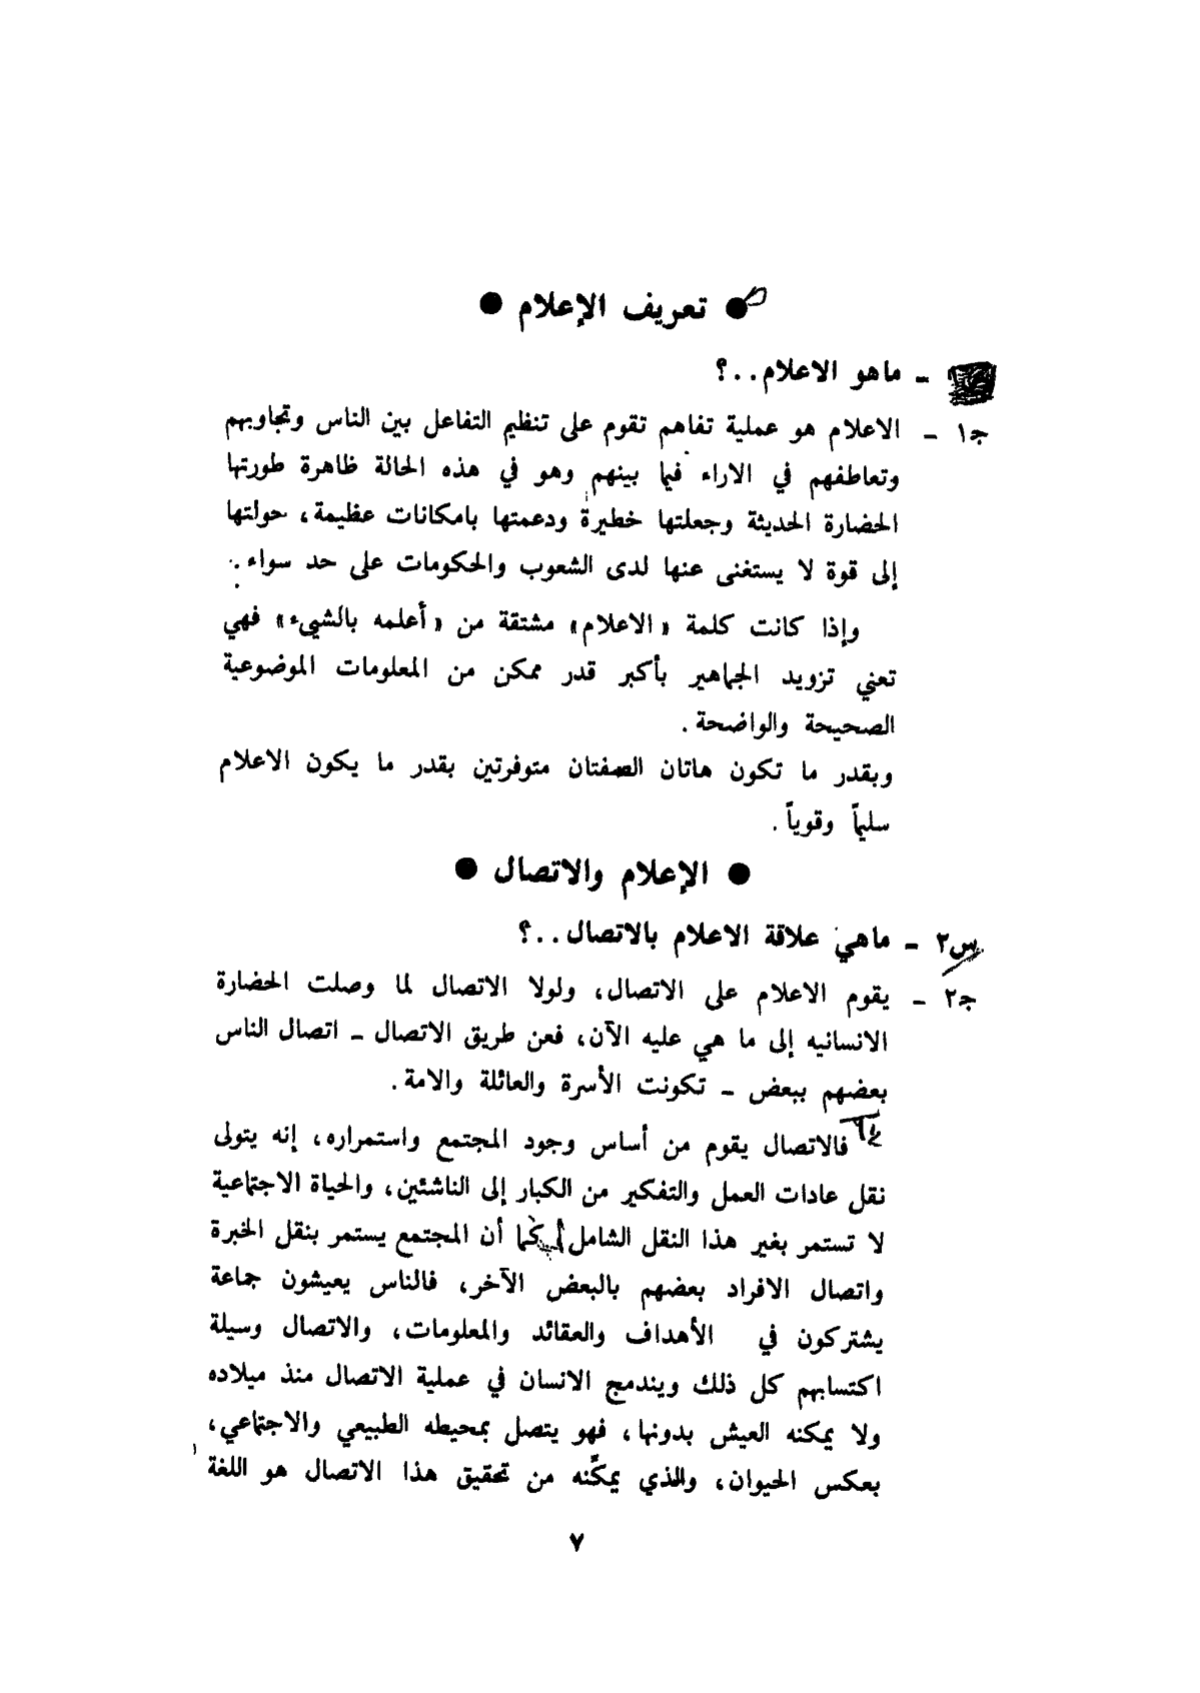 ● تعريف الإعلام ●
- ماهو الاعلام..؟
ج١ - الاعلام هو عملية تفاهم تقوم على تنظيم التفاعل بين الناس وتجاوبهم
وتعاطفهم في الاراء فيما بينهم وهو في هذه الحالة ظاهرة طورتها
الحضارة الحديثة وجعلتها خطيرة ودعمتها بامكانات عظيمة، حولتها
إلى قوة لا يستغنى عنها لدى الشعوب والحكومات على حد سواء.
وإذا كانت كلمة «الاعلام» مشتقة من «أعلمه بالشيء» فهي
تعني تزويد الجماهير بأكبر قدر ممكن من المعلومات الموضوعية
الصحيحة والواضحة.
وبقدر ما تكون هاتان الصفتان متوفرتين بقدر ما يكون الاعلام
سليماً وقوياً.
● الإعلام والاتصال ●
س٢ - ماهي علاقة الاعلام بالاتصال..؟
ج٢ - يقوم الاعلام على الاتصال، ولولا الاتصال لما وصلت الحضارة
الانسانيه إلى ما هي عليه الآن، فعن طريق الاتصال - اتصال الناس
بعضهم ببعض - تكونت الأسرة والعائلة والامة.
فالاتصال يقوم من أساس وجود المجتمع واستمراره، إنه يتولى
نقل عادات العمل والتفكير من الكبار إلى الناشئين، والحياة الاجتماعية
لا تستمر بغير هذا النقل الشامل كما أن المجتمع يستمر بنقل الخبرة
واتصال الافراد بعضهم بالبعض الآخر، فالناس يعيشون جماعة
يشتركون في الأهداف والعقائد والمعلومات، والاتصال وسيلة
اكتسابهم كل ذلك ويندمج الانسان في عملية الاتصال منذ ميلاده
ولا يمكنه العيش بدونها، فهو يتصل بمحيطه الطبيعي والاجتماعي،
بعكس الحيوان، والذي يمكّنه من تحقيق هذا الاتصال هو اللغة
٧